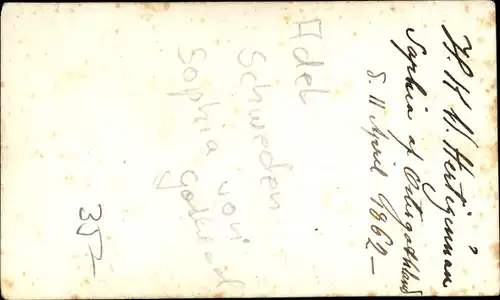 H.K.H. Hertiginnan
Sophia af Östergöthland
d. 11 April 1862 —
Adel
Schweden
Sophia von
Gotland
35,-